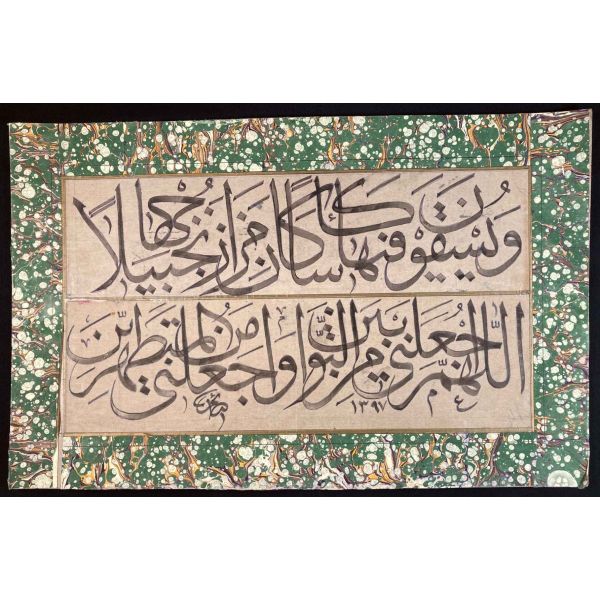 ويسقون فيها كأسا كان مزاجها زنجبيلا
اللهم اجعلني من التوابين واجعلني من المتطهرين
١٣٩٧